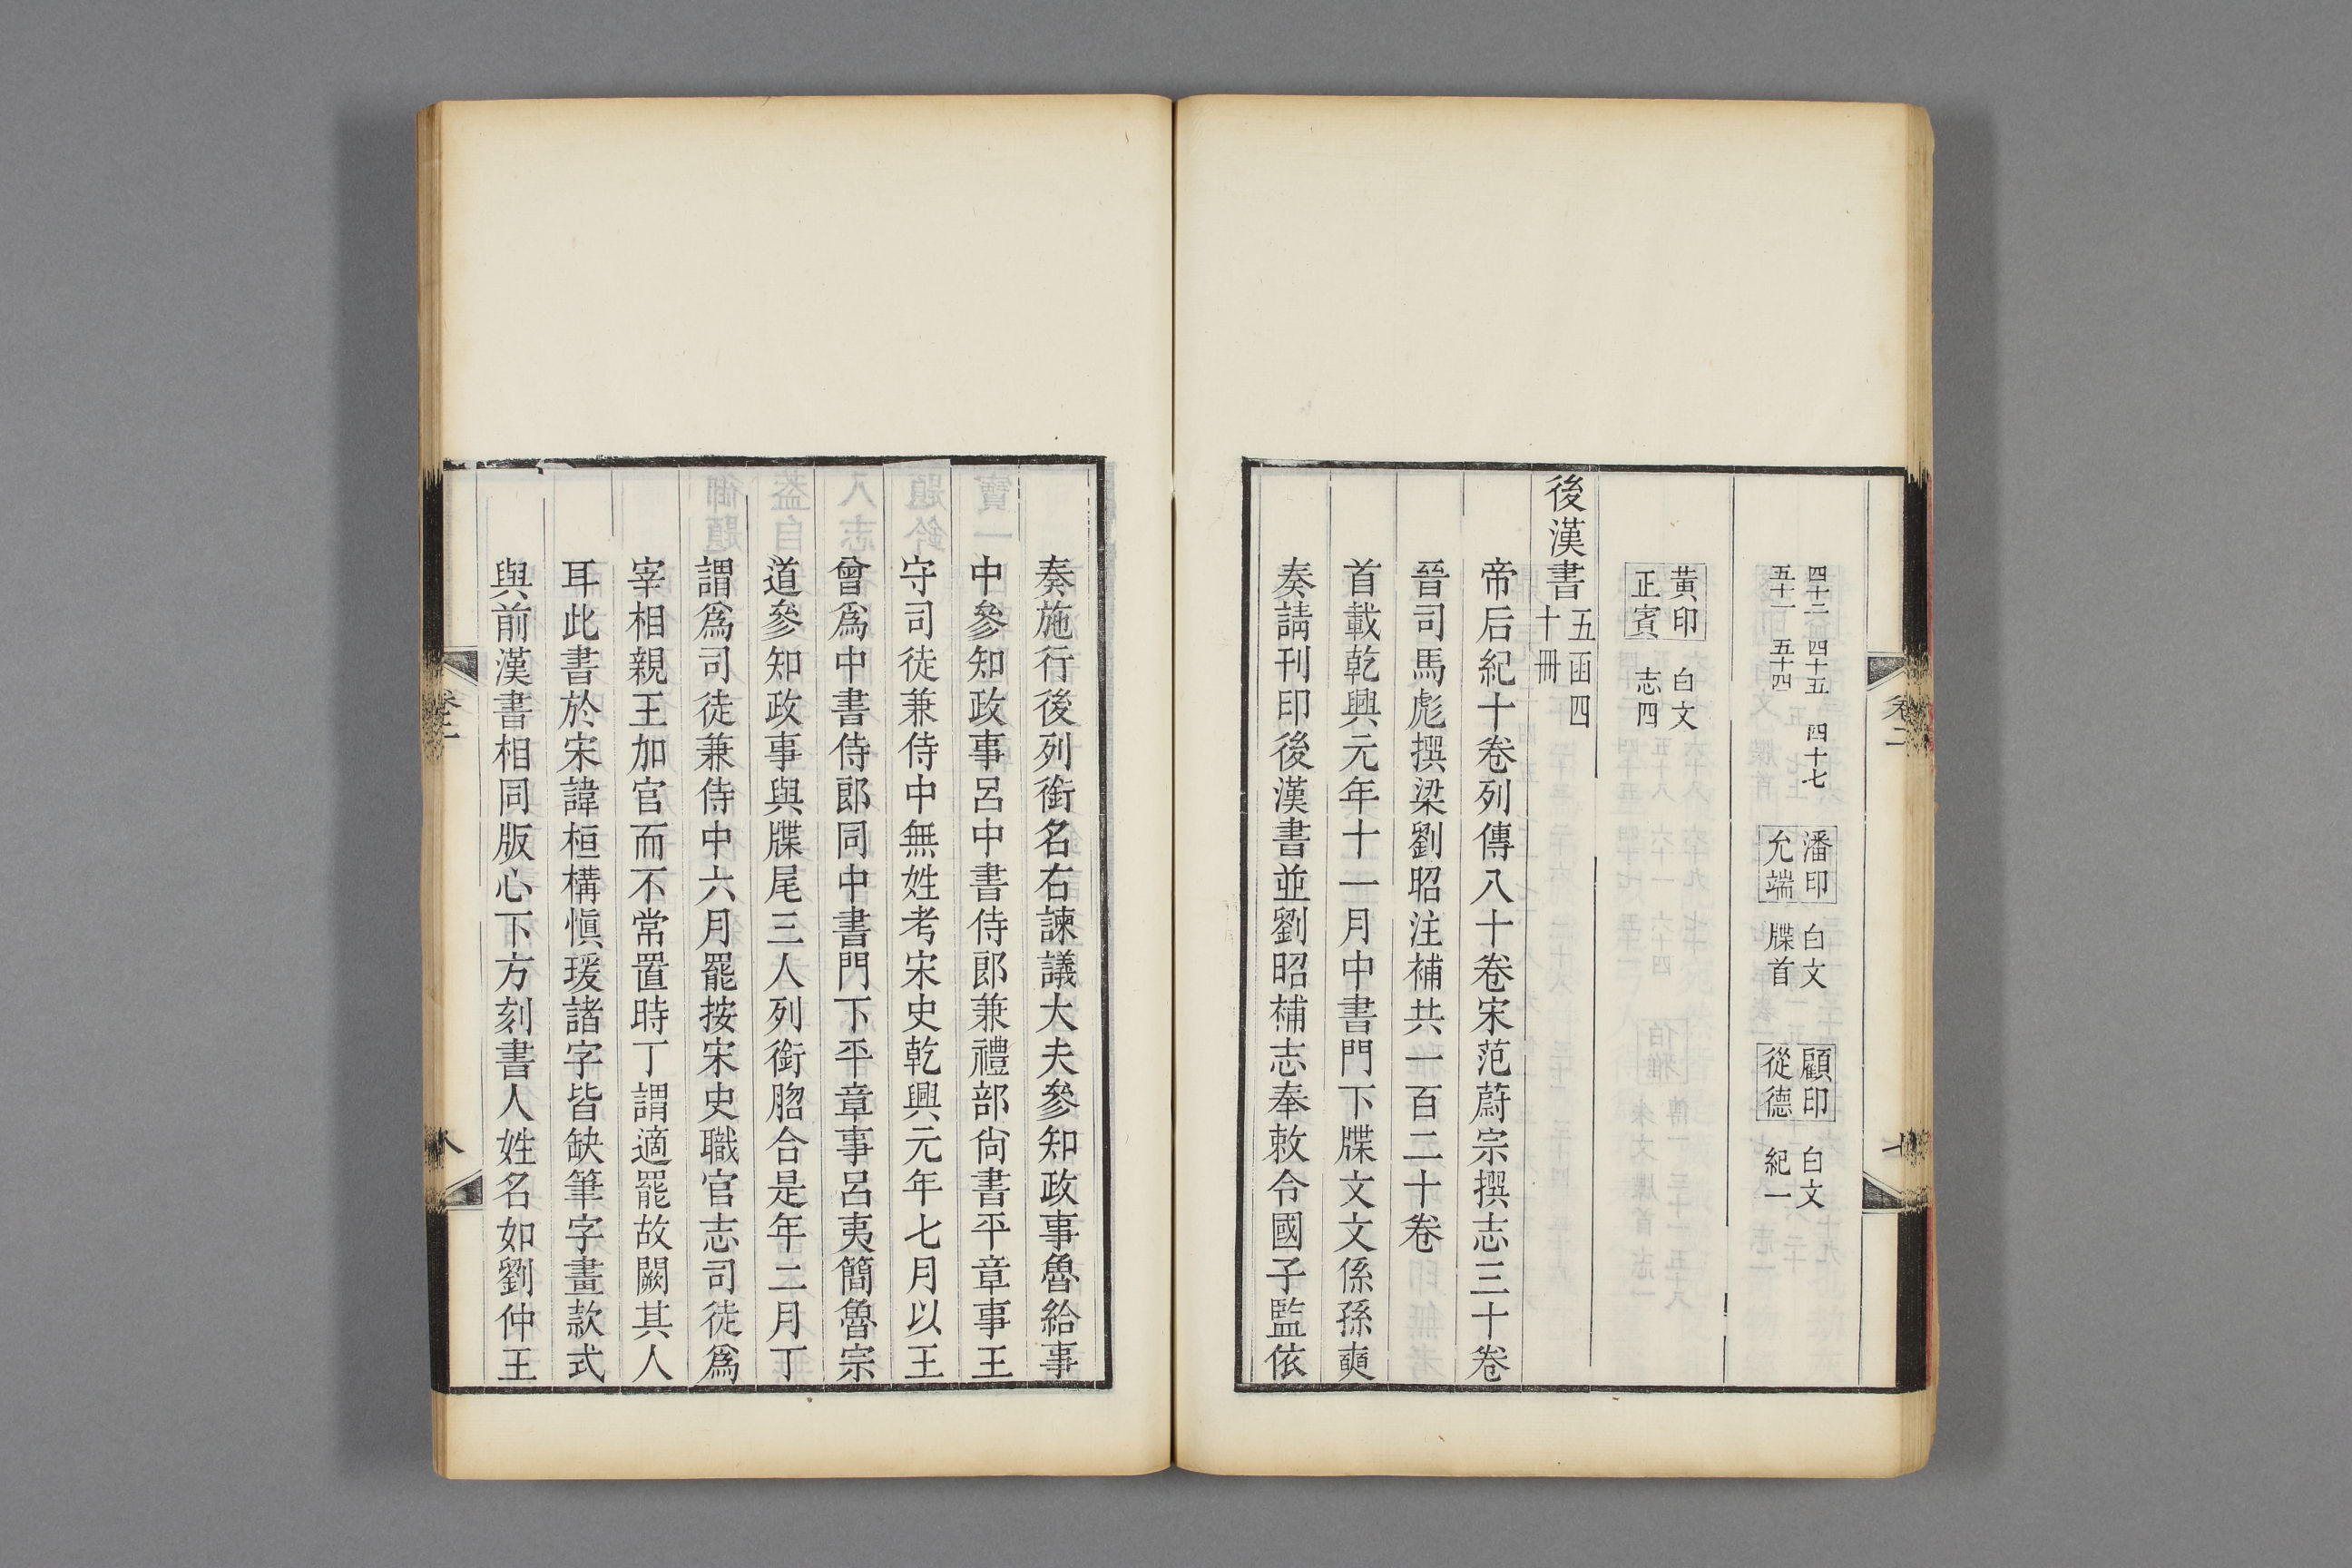 卷二
七
四十二 四十五 四十七
五十一 五十四
潘印
允端
白文
牒首
顧印
從德
白文
紀一
黃印
正賓
白文
志四
後漢書
五函四
十冊
帝后紀十卷列傳八十卷宋范蔚宗撰志三十卷
晉司馬彪撰梁劉昭注補共一百二十卷
首載乾興元年十一月中書門下牒文文係孫奭
奏請刊印後漢書並劉昭補志奉敕令國子監依
奏施行後列銜名右諫議大夫參知政事魯給事
中參知政事呂中書侍郎兼禮部尙書平章事王
守司徒兼侍中無姓考宋史乾興元年七月以王
曾爲中書侍郎同中書門下平章事呂夷簡魯宗
道參知政事與牒尾三人列銜脗合是年二月丁
謂爲司徒兼侍中六月罷按宋史職官志司徒爲
宰相親王加官而不常置時丁謂適罷故闕其人
耳此書於宋諱桓構愼瑗諸字皆缺筆字畫款式
與前漢書相同版心下方刻書人姓名如劉仲王
卷二
八